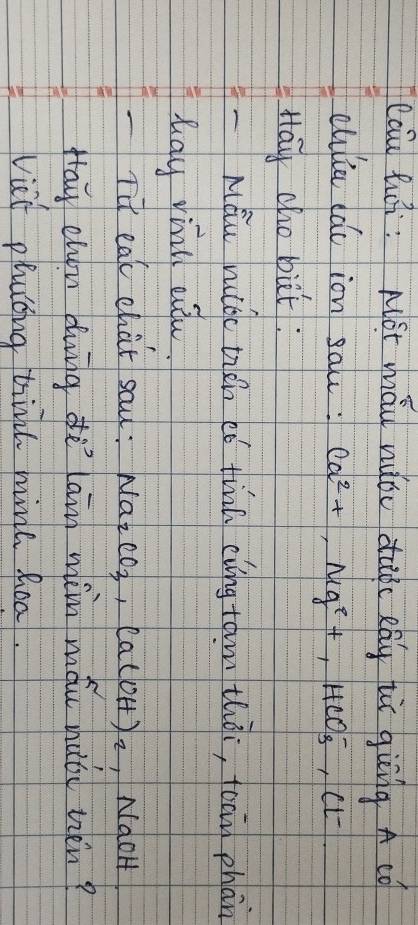 Câu hỏi: Một mẫu nước được lấy từ giếng A có
chứa các ion sau: Ca²⁺, Mg²⁺, HCO₃⁻, Cl⁻.
Hãy cho biết:
- Mẫu nước trên có tính cứng tạm thời, toàn phần
hay vĩnh cửu.
- Từ các chất sau: Na₂CO₃, Ca(OH)₂, NaOH.
Hãy chọn dùng để làm mềm mẫu nước trên?
Viết phương trình minh hoạ.